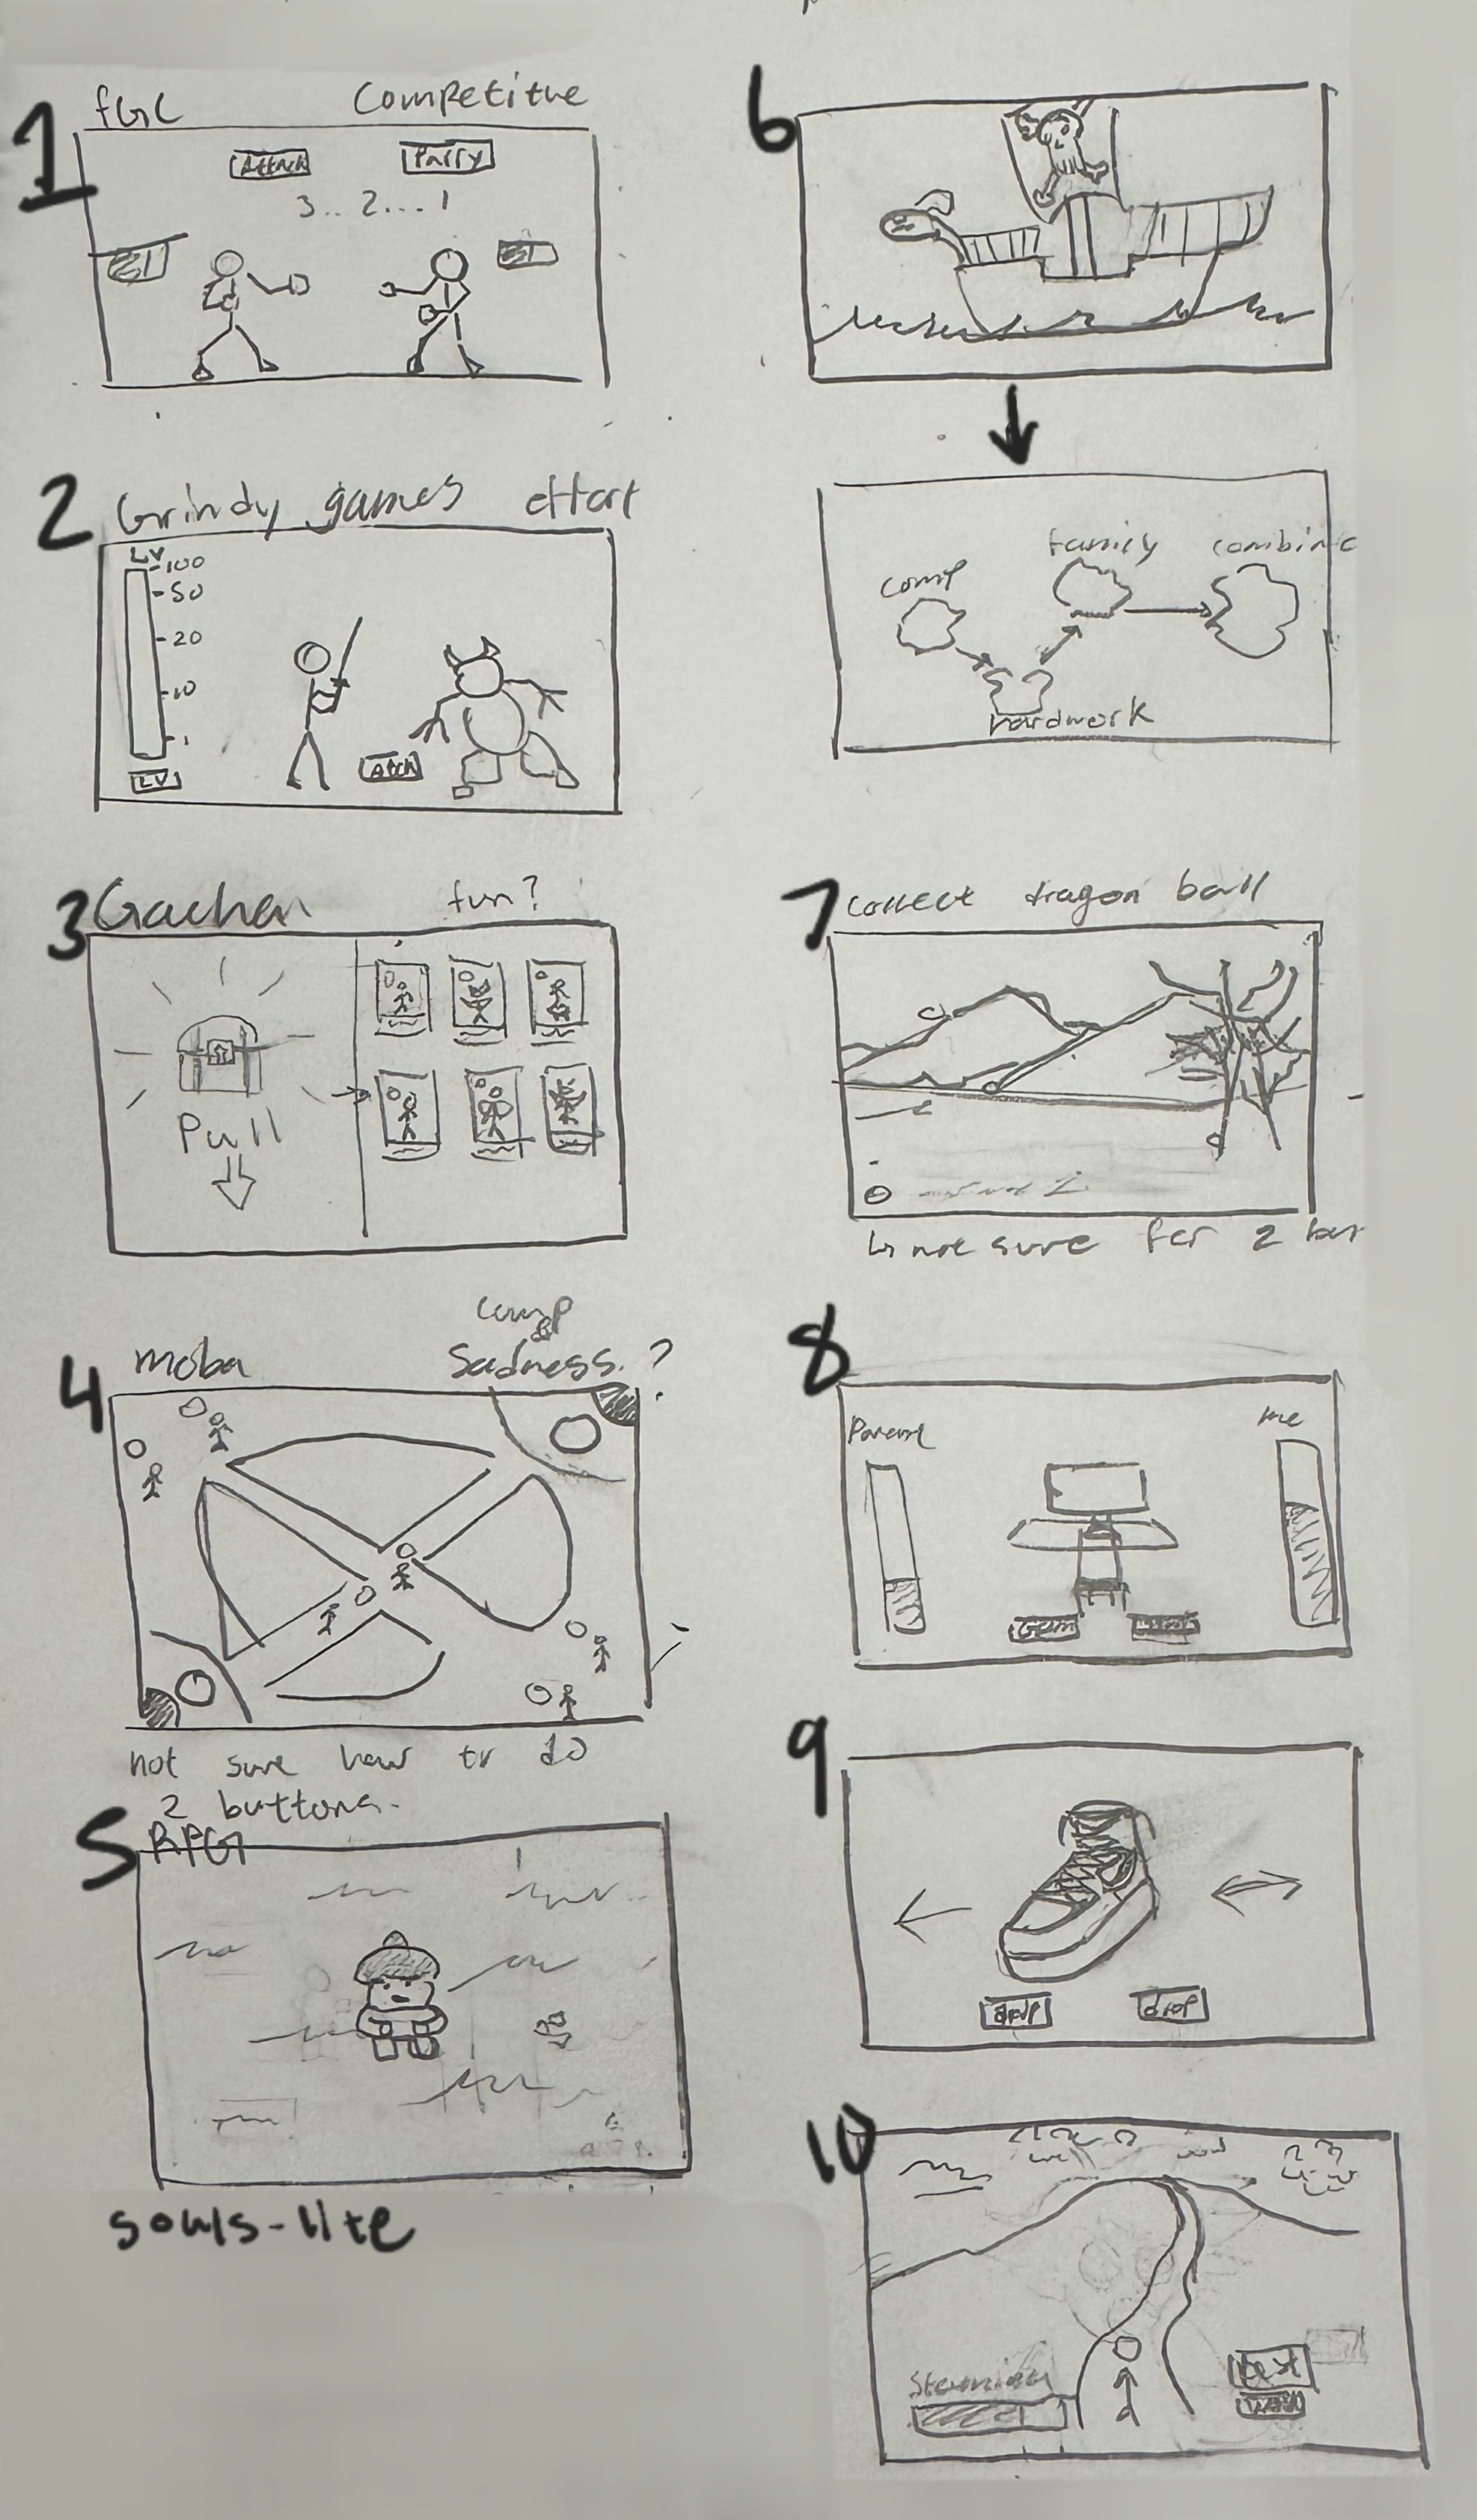 1
fGC Competitive
Attack Parry
3.. 2... 1
2
Grindy games effort
LV
100
50
20
10
1
LV
3
Gachen fun?
Pull
4
moba comp
&
Sadness. ?
not sure how to do
2 buttons.
5
RPG
souls-lite
6
comp family combine
hardwork
7
collect dragon ball
↳ not sure for 2
8
Parent me
9
drop
10
Stamina
rest
walk